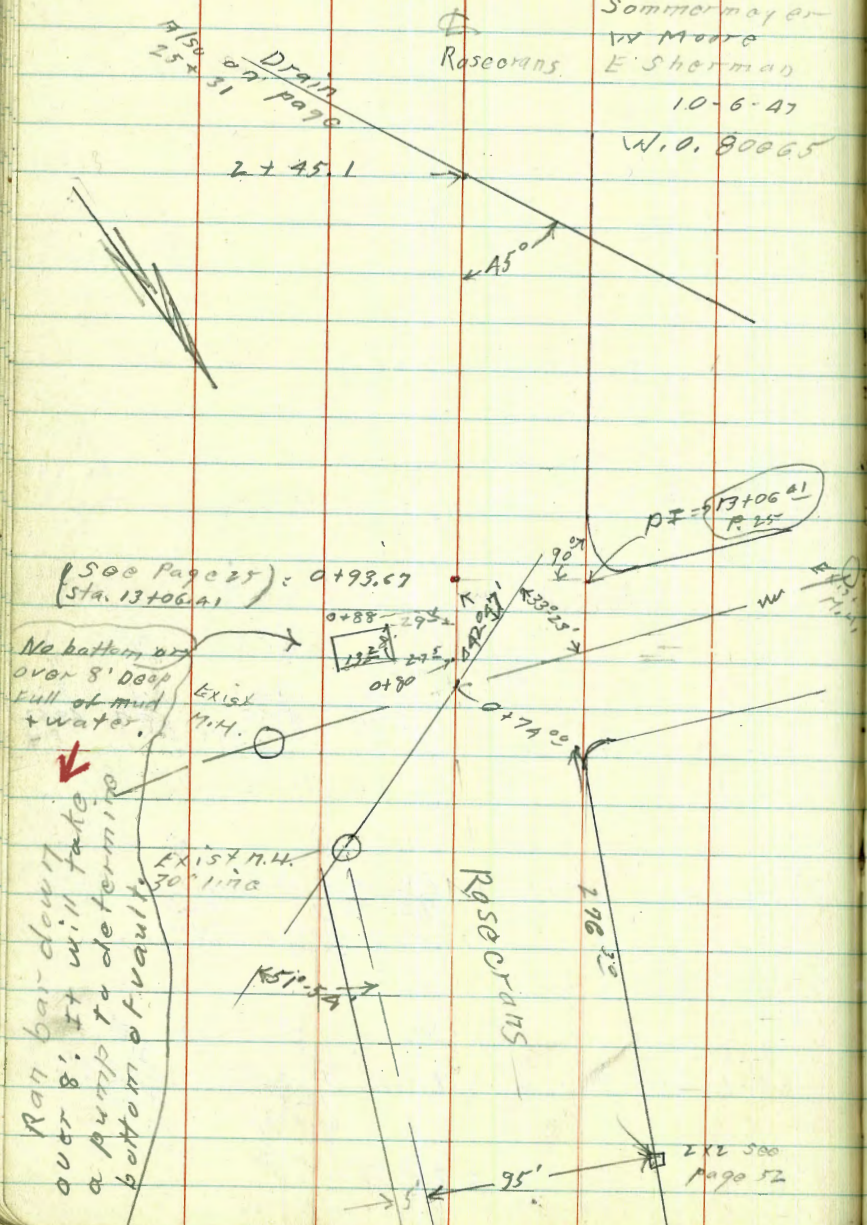 ℄
Rosecrans
Sommermayer
W Moore
E Sherman
10-6-47
W.O. 80665
Also
25 + 31
Drain
on page
2 + 45.1
45°
PI = 13+06 41
P. 25
90°
(See Page 25) : 0+93.67
(sta. 13+06.41
Δ 42° 47'
33° 23'
W
Exist
M.H.
0+88
29 5
13 2
27 5
0+80
0+74 00
No bottom or
over 8' Deep
full of mud
+ water.
Exist
M.H.
Exist M.H.
30" line
Rosecrans
296 30
51°-54'
Ran bar down
over 8'. It will take
a pump to determine
bottom of vault.
2x2 See
page 52
95'
5'